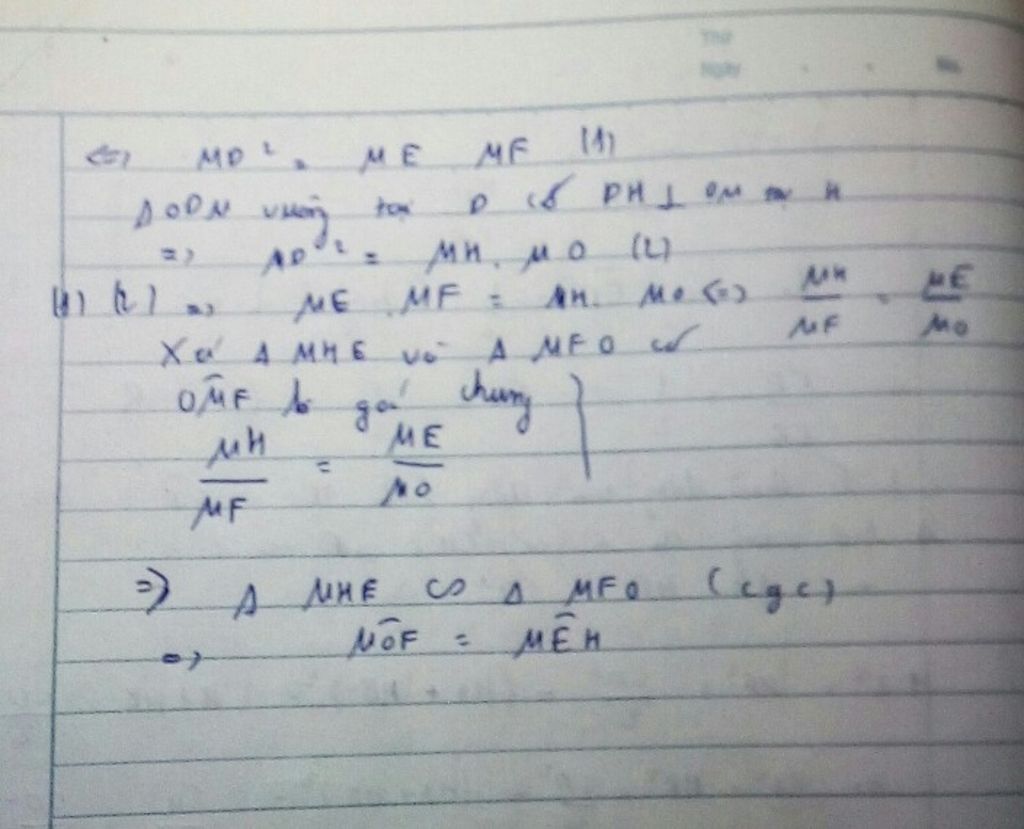 Thứ
Ngày No.
<=> MD² = ME MF (1)
Δ ODM vuông tại D có DH ⊥ OM tại H
=> MD² = MH. MO (2)
(1) (2) => ME . MF = MH. MO <=> MH/MF = ME/MO
Xét Δ MHE và Δ MFO có
OM̂F là góc chung
MH/MF = ME/MO
=> Δ MHE ∽ Δ MFO (cgc)
=> MÔF = MÊH